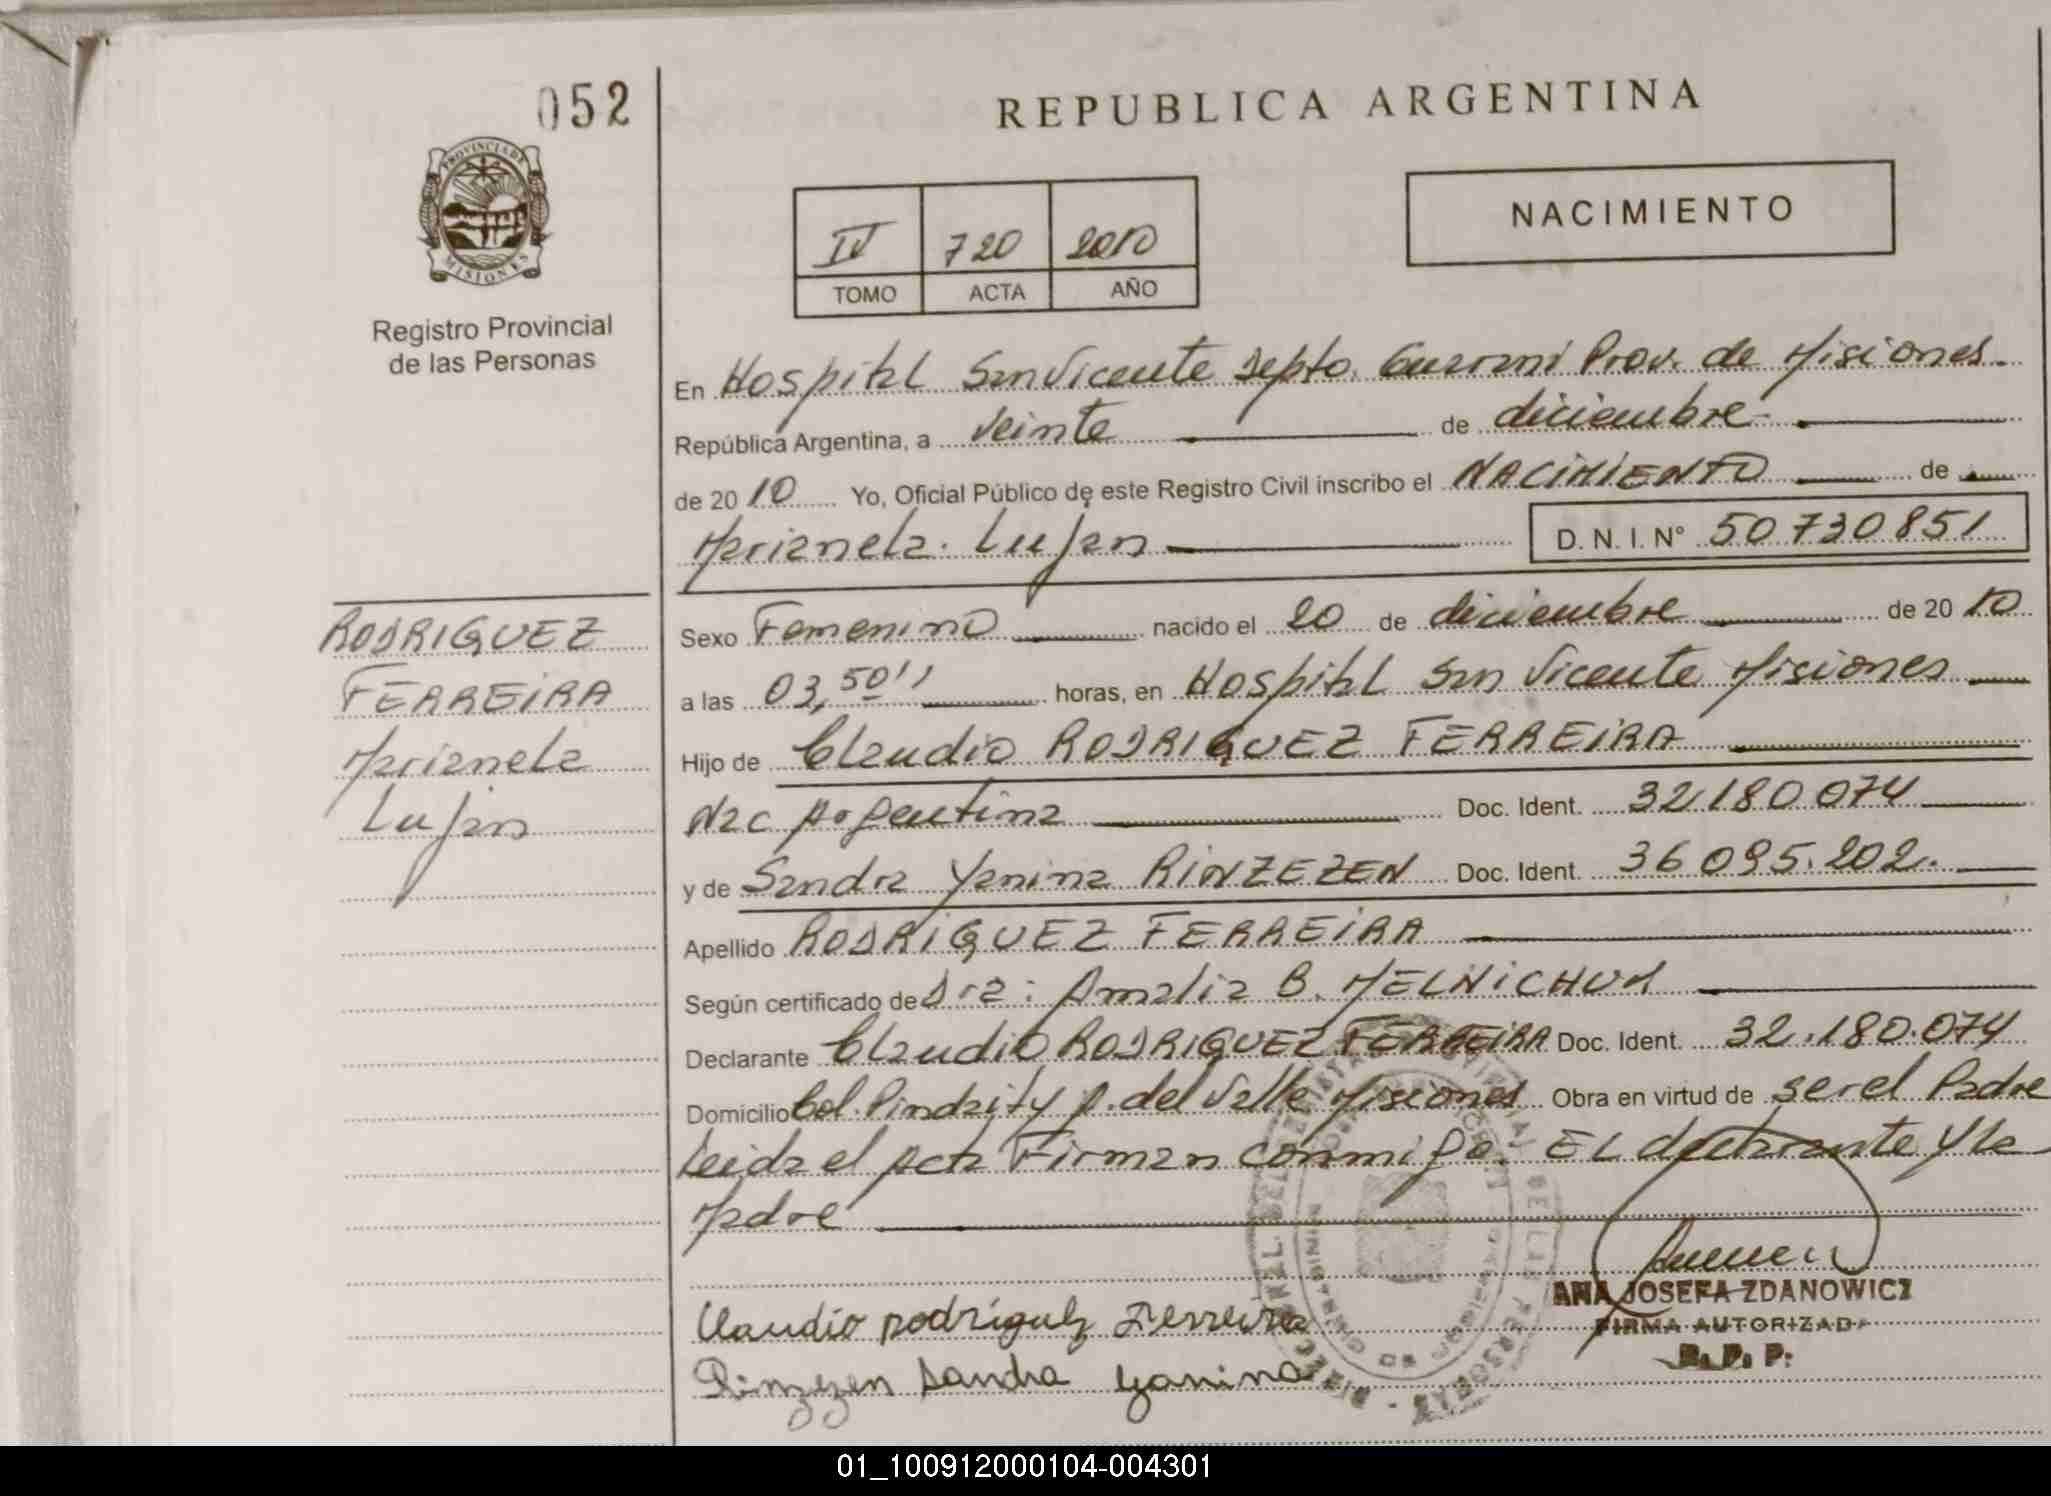 052
REPUBLICA ARGENTINA
PROVINCIA DE
MISIONES
Registro Provincial
de las Personas
IV 720 2010
TOMO ACTA AÑO
NACIMIENTO
En Hospital San Vicente Depto. Guarani Prov. de Misiones.
República Argentina, a veinte de diciembre
de 20 10 Yo, Oficial Público de este Registro Civil inscribo el NACIMIENTO de
Marianela Lujan D. N. I. N° 50730851
RODRIGUEZ
FERREIRA
Marianela
Lujan
Sexo Femenino nacido el 20 de diciembre de 20 10
a las 03,50'' horas, en Hospital San Vicente Misiones
Hijo de Claudio RODRIGUEZ FERREIRA
Nac Argentina Doc. Ident. 32.180.074
y de Sandra Yanina RINZEZEN Doc. Ident. 36.095.202.
Apellido RODRIGUEZ FERREIRA
Según certificado de Dra: Amalia B. MELNICHUK
Declarante Claudio RODRIGUEZ FERREIRA Doc. Ident. 32.180.074
Domicilio Col. Pindaity p. del Valle Misiones Obra en virtud de ser el Padre
Leida el Acta Firman conmigo. EL declarante y la
Madre
Claudio Rodriguez Ferreira
Rinzezen Sandra Yanina
ANA JOSEFA ZDANOWICZ
FIRMA AUTORIZADA
R. P. P.
01_100912000104-004301